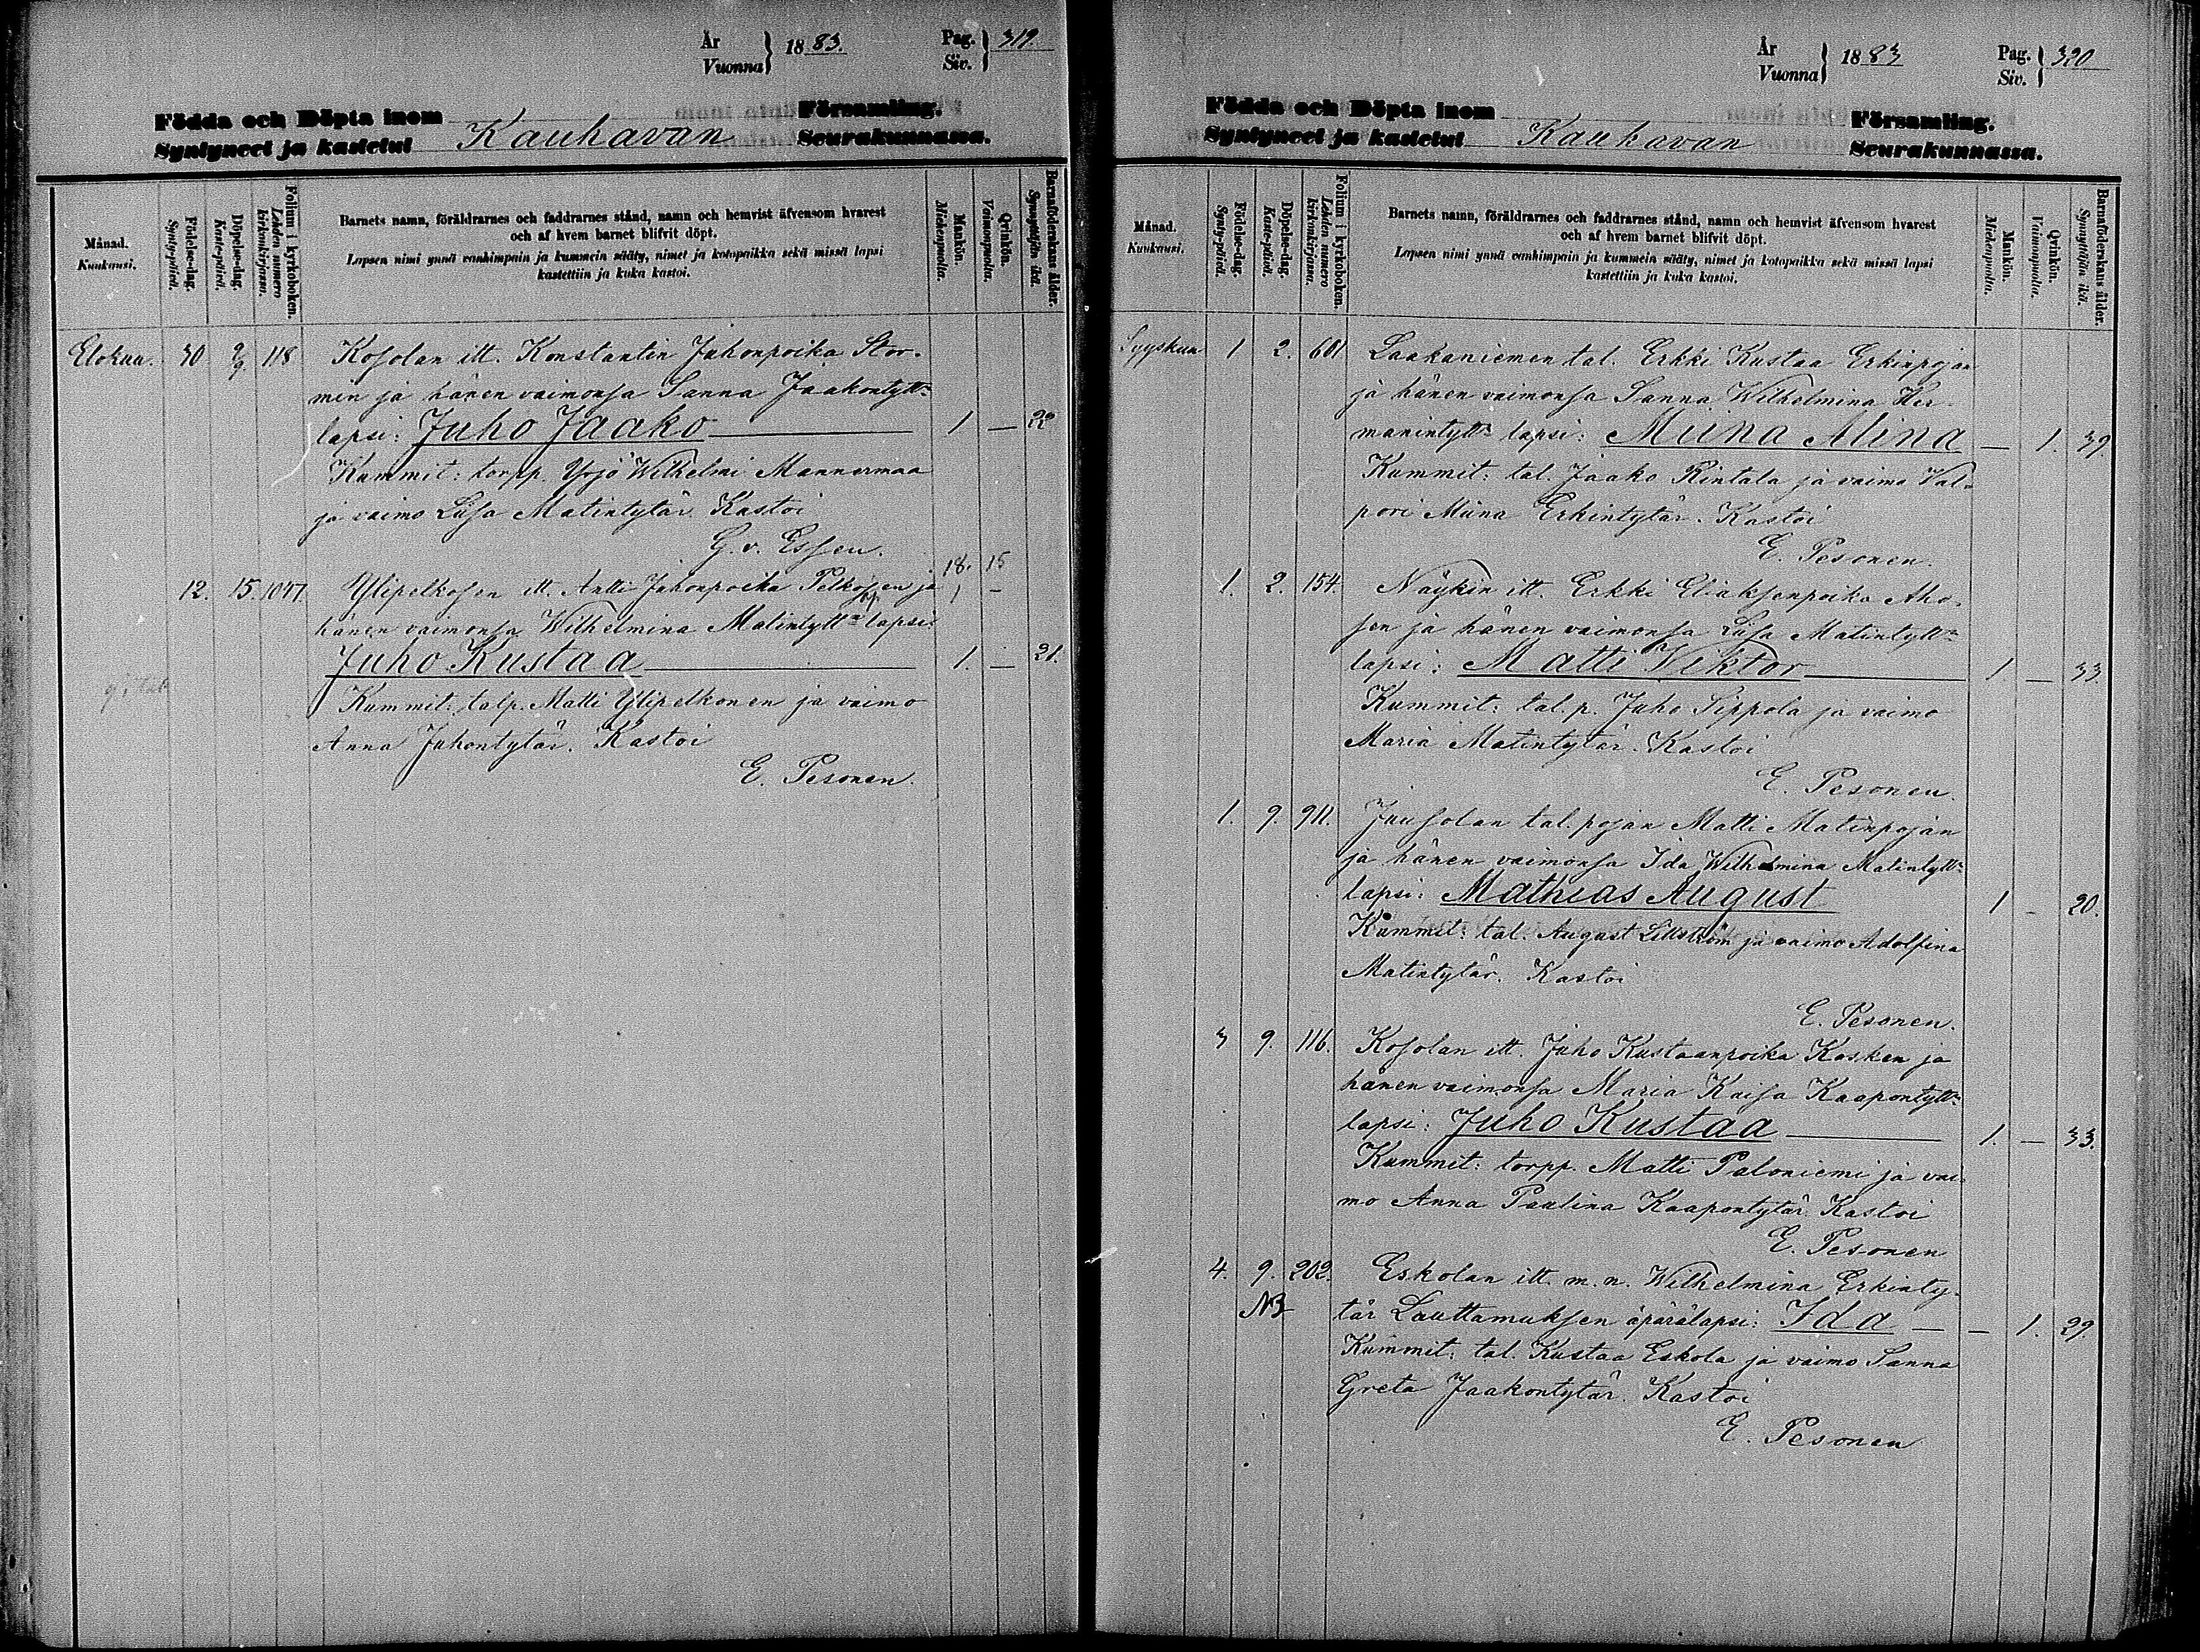 År
Vuonna } 1883.
Pag.
Siv. } 319.
Födda och Döpta inom
Syntyneet ja kastetut
Kauhavan
Församling.
Seurakunnassa.
Månad.
Kuukausi.
Födelse-dag.
Synty-päivä.
Döpelse-dag.
Kaste-päivä.
Folium i kyrkoboken.
Lehden numero
kirkonkirjassa.
Barnets namn, föräldrarnes och faddrarnes stånd, namn och hemvist äfvensom hvarest
och af hvem barnet blifvit döpt.
Lapsen nimi ynnä vanhimpain ja kummein sääty, nimet ja kotopaikka sekä missä lapsi
kastettiin ja kuka kastoi.
Mankön.
Miehenpuolta.
Qvinkön.
Vaimonpuolta.
Barnaföderskans ålder.
Synnyttäjän ikä.
Elokuu. 30 2/9 118 Kosolan itt. Konstantin Juhonpoika Stor-
min ja hänen vaimonsa Sanna Jaakontytt:n
lapsi: Juho Jaako — 1 — 22
Kummit: torpp. Yrjö Wilhelmi Mannermaa
ja vaimo Liisa Matintytär. Kastoi
G. v. Essen.
18. 15
12. 15. 1047. Ylipelkosen itt. Antti Juhonpoika Pelkosen ja 1 -
hänen vaimonsa Wilhelmina Matintytt:n lapsi:
Juho Kustaa — 1. — 21.
Kummit: talp. Matti Ylipelkonen ja vaimo
Anna Juhontytär. Kastoi
E. Pesonen.
År
Vuonna } 1883
Pag.
Siv. } 320
Födda och Döpta inom
Syntyneet ja kastetut
Kauhavan
Församling.
Seurakunnassa.
Månad.
Kuukausi.
Födelse-dag.
Synty-päivä.
Döpelse-dag.
Kaste-päivä.
Folium i kyrkoboken.
Lehden numero
kirkonkirjassa.
Barnets namn, föräldrarnes och faddrarnes stånd, namn och hemvist äfvensom hvarest
och af hvem barnet blifvit döpt.
Lapsen nimi ynnä vanhimpain ja kummein sääty, nimet ja kotopaikka sekä missä lapsi
kastettiin ja kuka kastoi.
Mankön.
Miehenpuolta.
Qvinkön.
Vaimonpuolta.
Barnaföderskans ålder.
Synnyttäjän ikä.
Syyskuu 1 2. 601 Laakaniemen tal. Erkki Kustaa Erkinpojan
ja hänen vaimonsa Sanna Wilhelmina Her-
manintytt:n lapsi: Miina Alina — 1. 39.
Kummit: tal. Jaako Rintala ja vaimo Val-
pori Miina Erkintytär. Kastoi
E. Pesonen.
1. 2. 154. Näykin itt. Erkki Eliaksenpoika Aho-
sen ja hänen vaimonsa Liisa Matintytt:n
lapsi: Matti Viktor — 1 — 33.
Kummit: tal. p. Juho Sippola ja vaimo
Maria Matintytär. Kastoi
E. Pesonen.
1. 9. 911. Juusolan tal. pojan Matti Matinpojan
ja hänen vaimonsa Ida Wilhelmina Matintytt:n
lapsi: Mathias August 1 - 20.
Kummit: tal. August Lillström ja vaimo Adolfina
Matintytär. Kastoi
E. Pesonen.
3 9. 116. Kosolan itt. Juho Kustaanpoika Kosken ja
hänen vaimonsa Maria Kaisa Kaapontytt:n
lapsi: Juho Kustaa — 1. — 33.
Kummit: torpp. Matti Paloniemi ja vai-
mo Anna Paulina Kaapontytär. Kastoi
E. Pesonen
4. 9. 202. Eskolan itt. m. n. Wilhelmina Erkinty-
NB tär Lauttamuksen äpärälapsi: Ida — — 1. 29.
Kummit: tal. Kustaa Eskola ja vaimo Sanna
Greta Jaakontytär. Kastoi
E. Pesonen